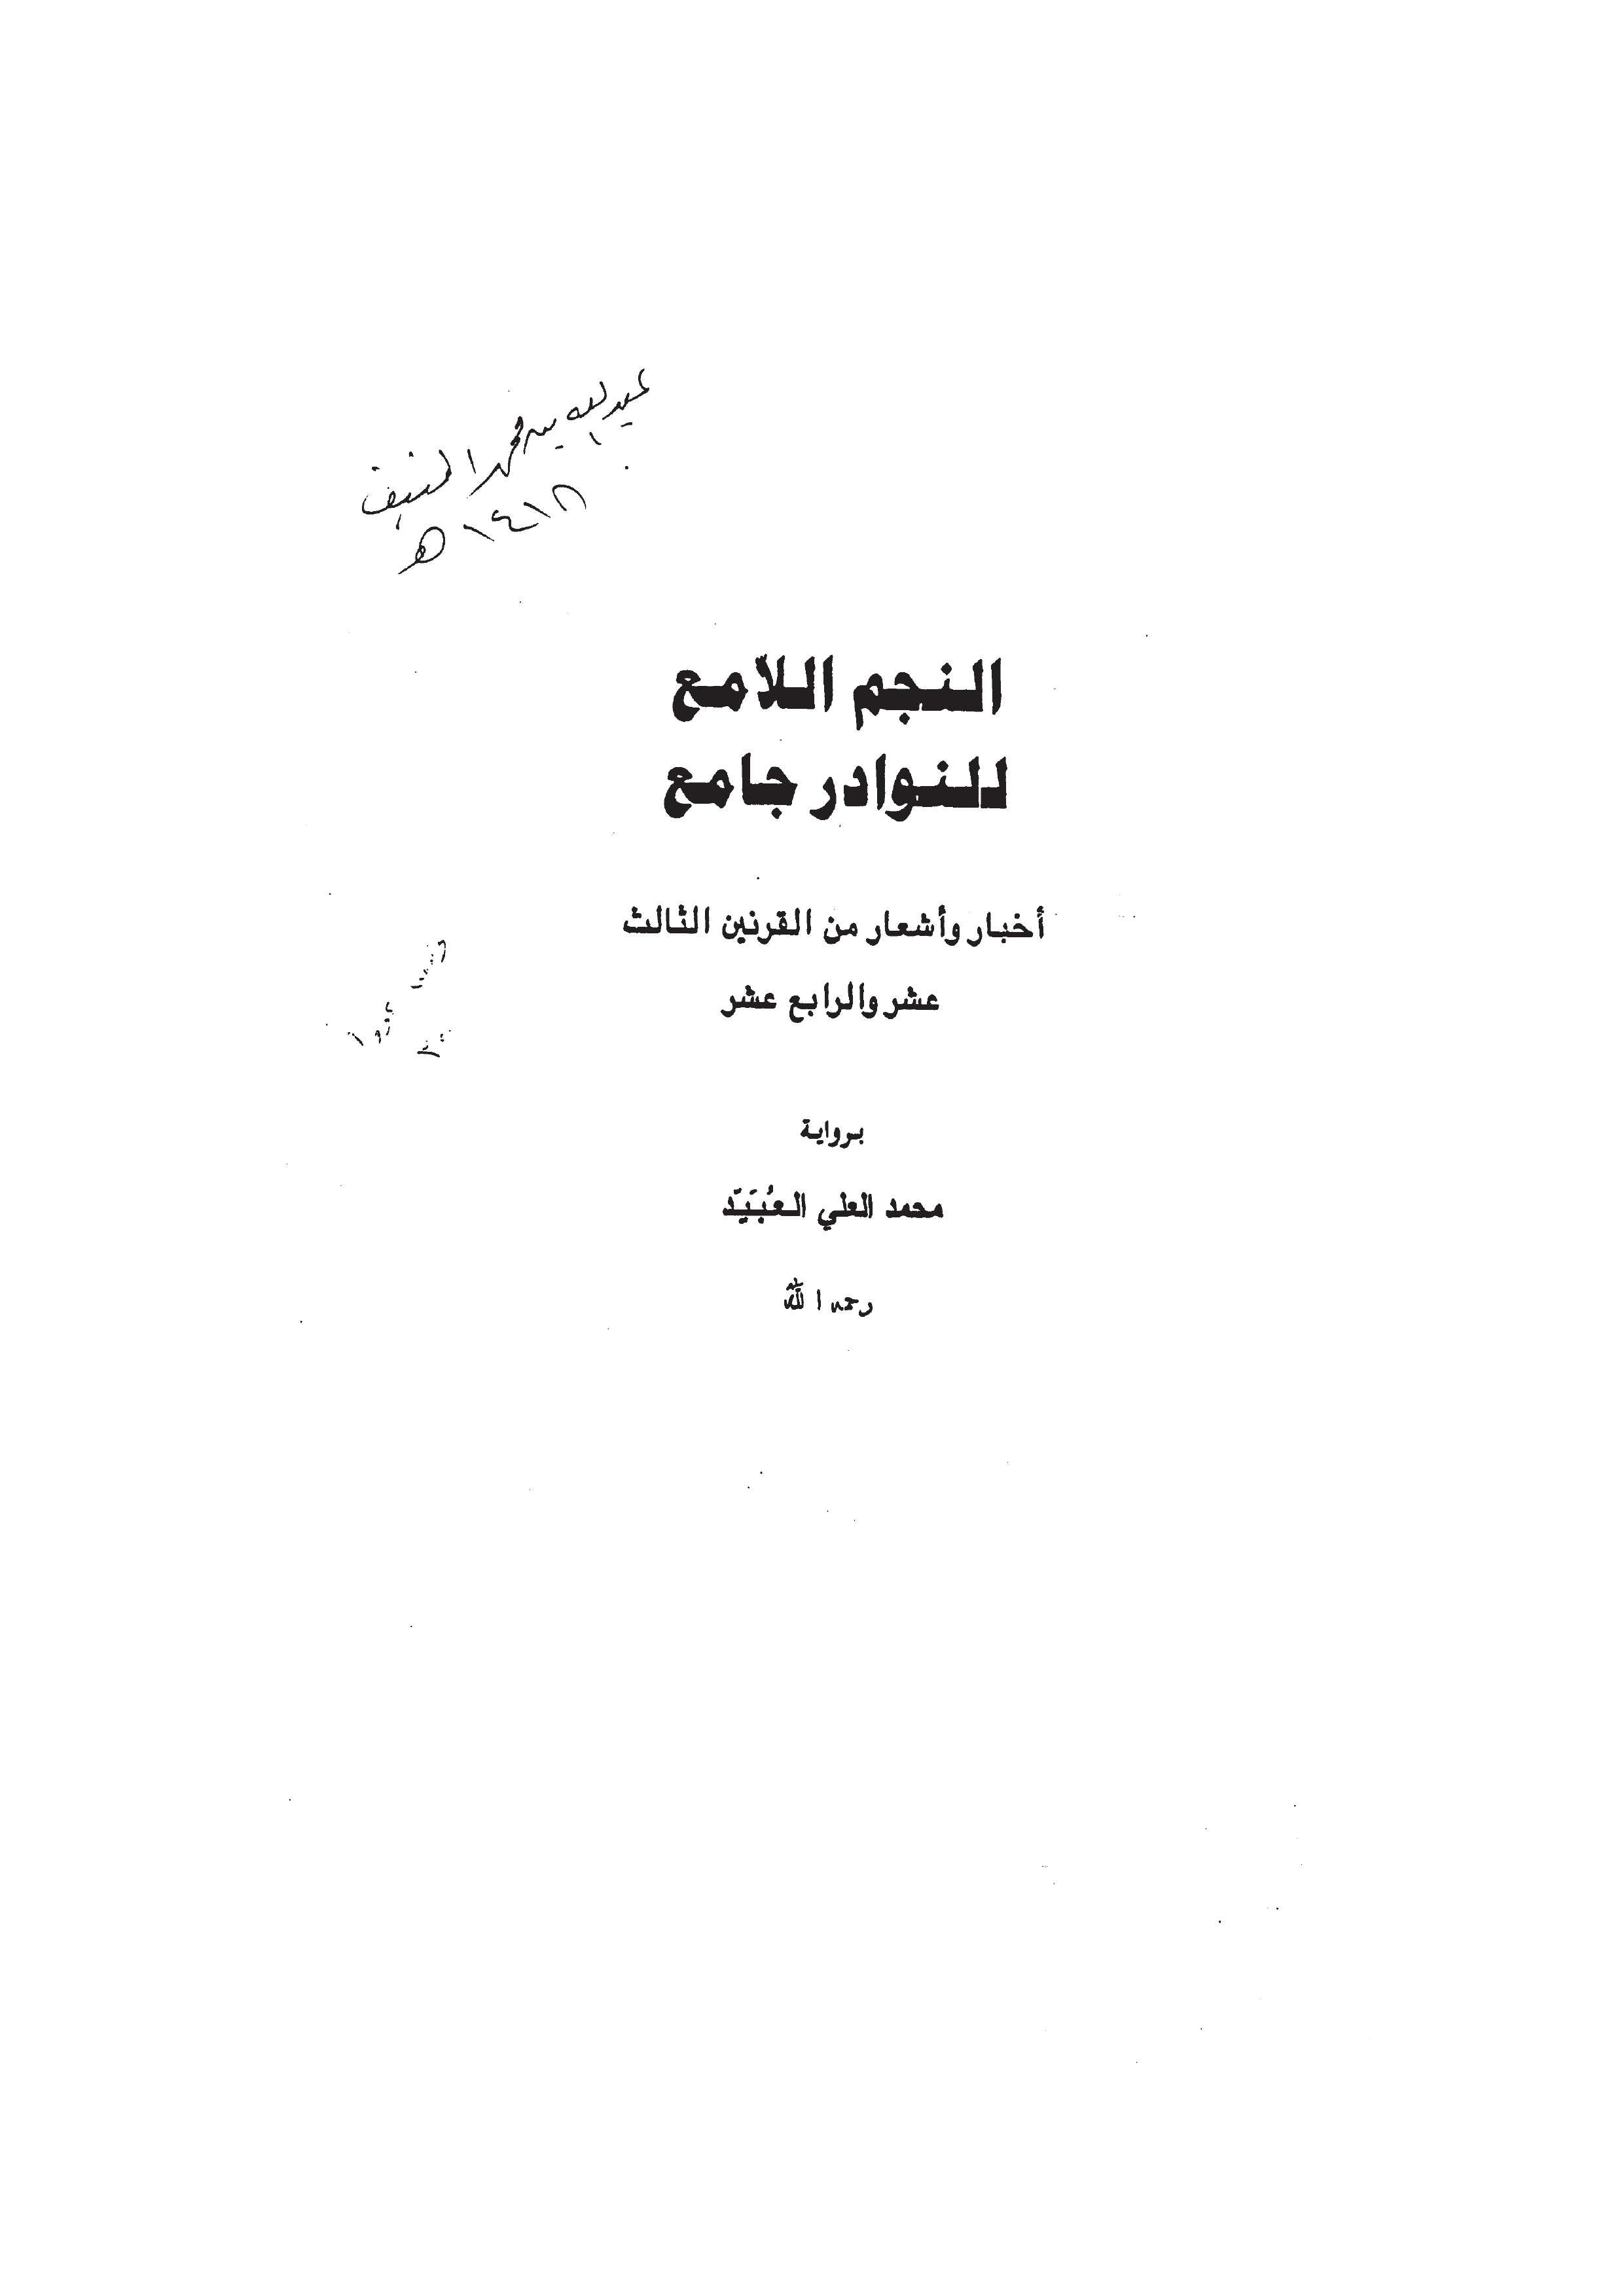 عبدالله بن محمد المنيف
١٤١٨هـ
النجم اللامع
للنوادر جامع
أخبار وأشعار من القرنين الثالث
عشر والرابع عشر
برواية
محمد العلي العُبَيّد
رحمه الله